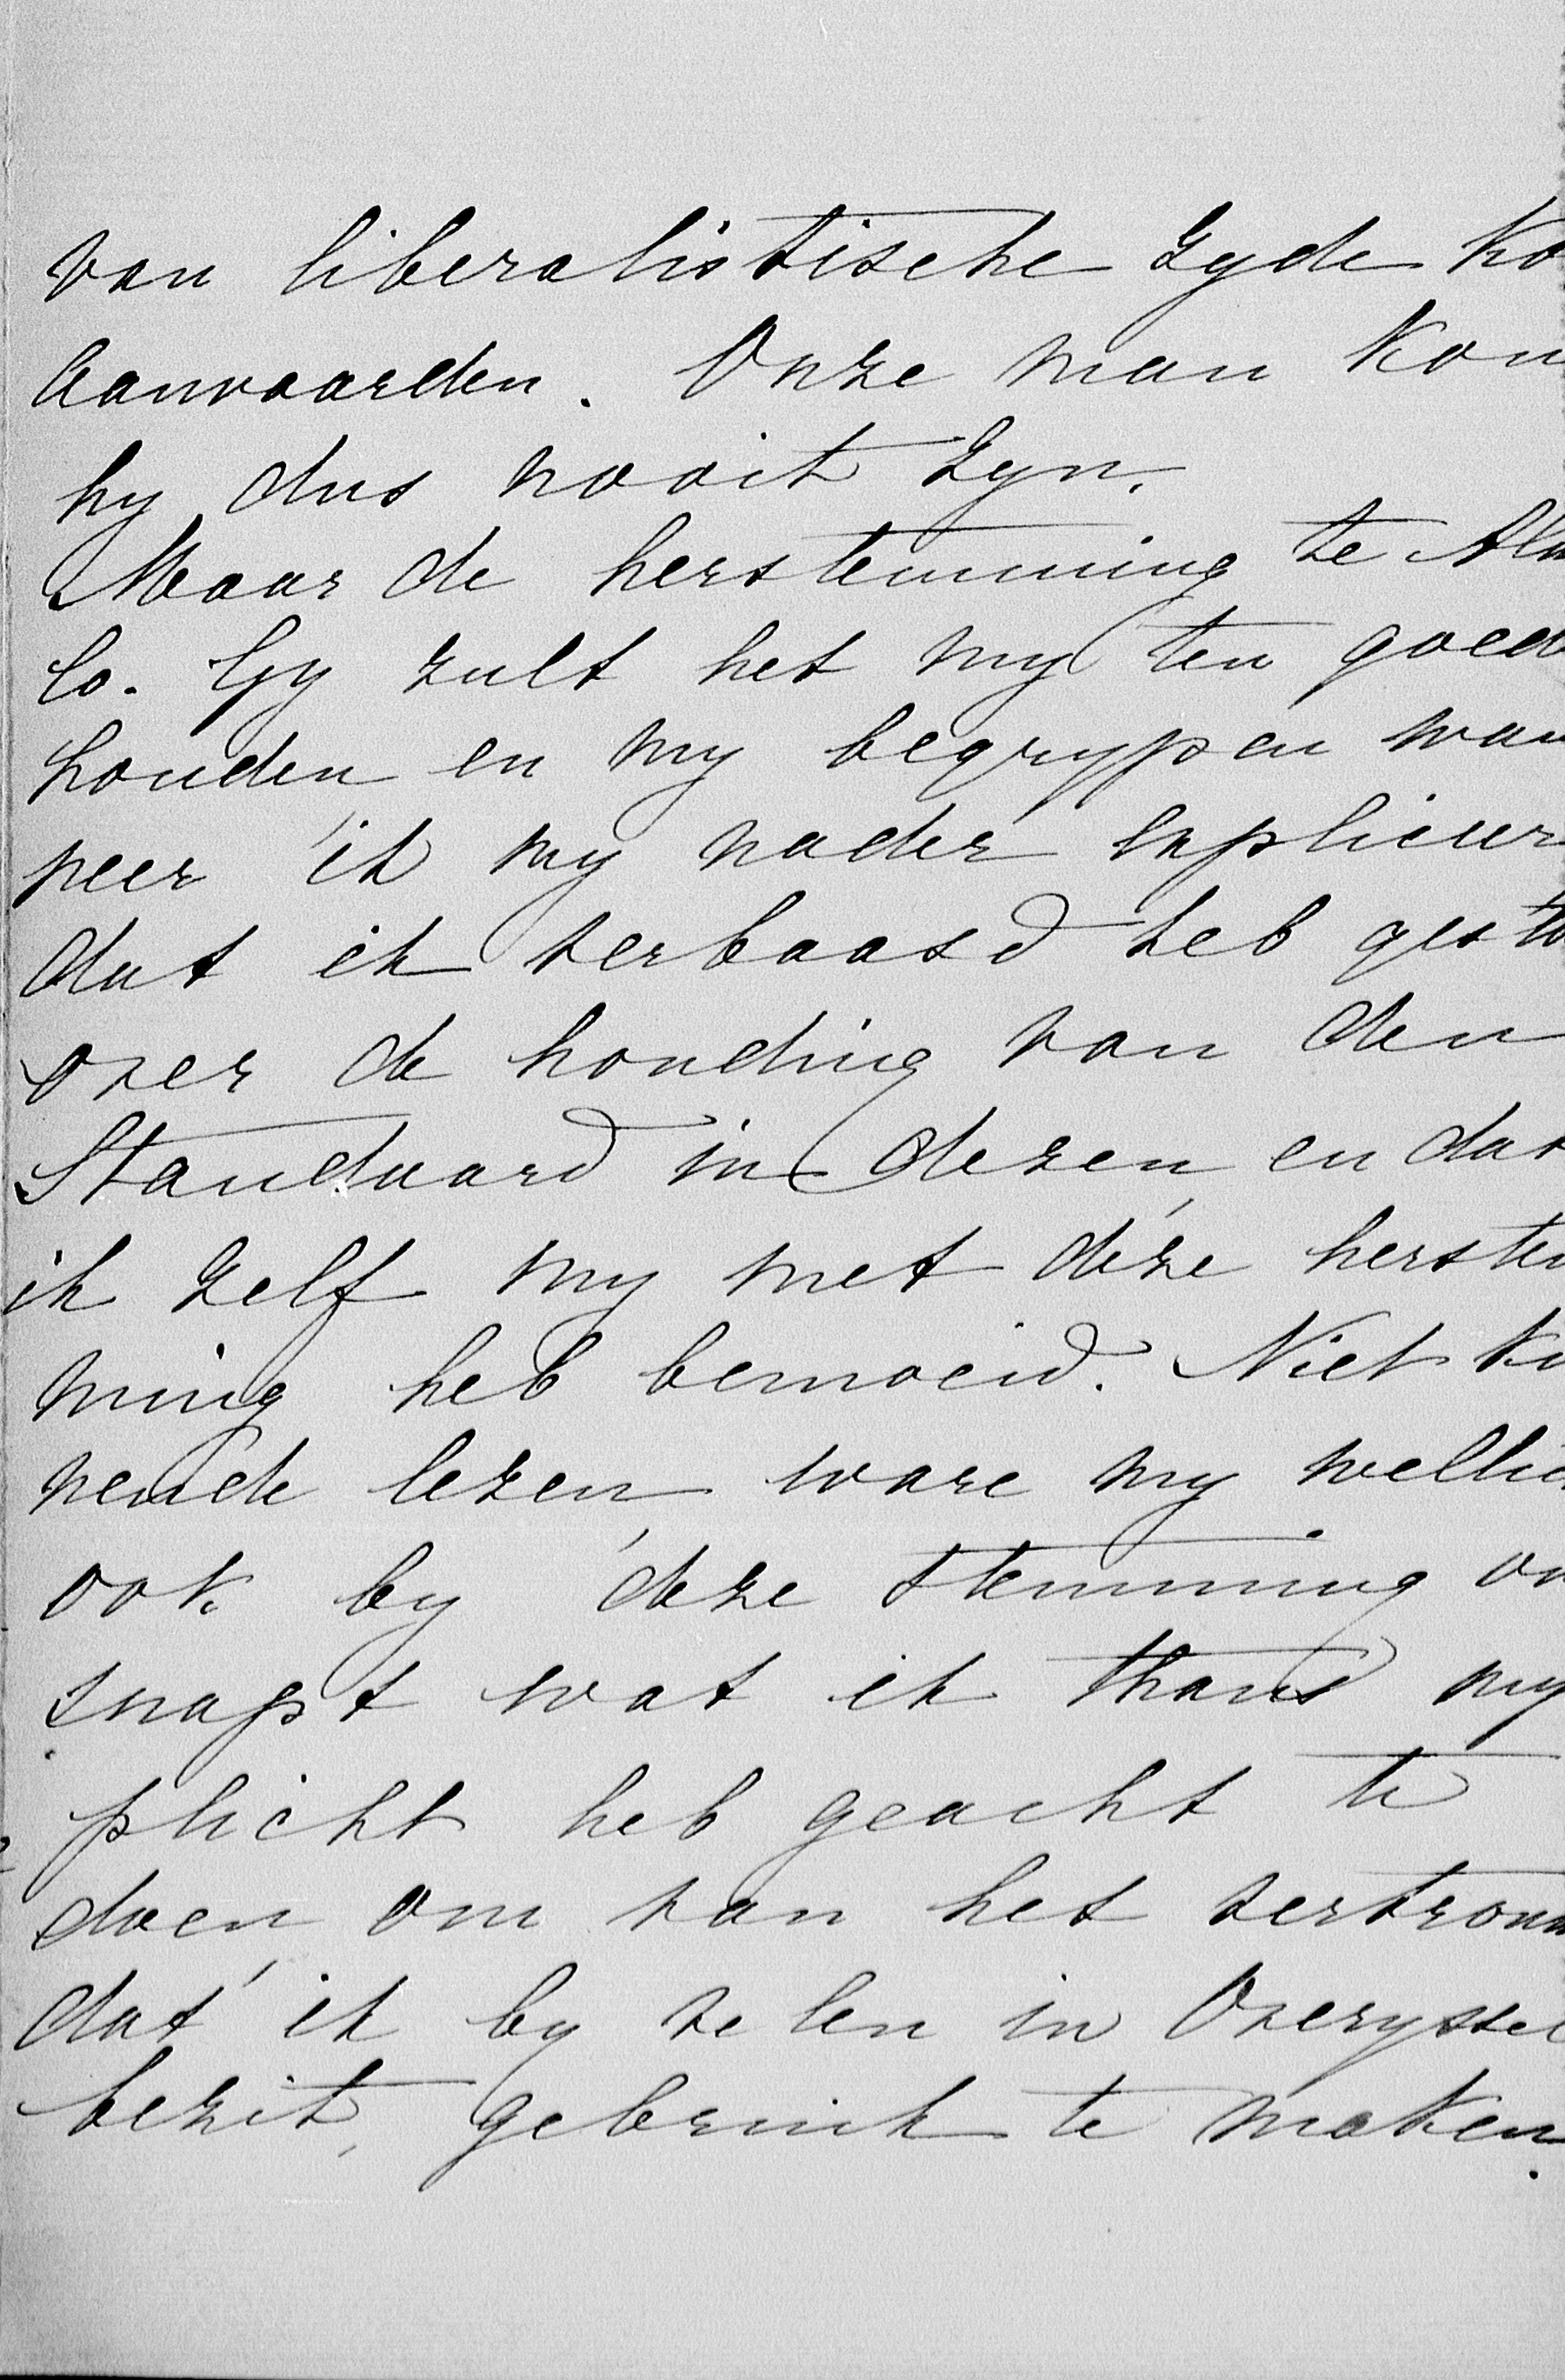 van liberalistische zyde ko
aanvaarden. Onze man kon
hy dus nooit zyn.
Maar de herstemming te Alm
lo. Gy zult het my ten goed
houden en my begrypen wan
neer ik my nader expliceer
dat ik verbaasd heb gest
over de houding van den
Standaard in dezen, en dat
ik zelf my met déze herstem
ming heb bemoeid. Niet ku
nende lezen, ware my wellic
ook by déze stemming on
snapt wat ik thans my
plicht heb geacht te
doen, om van het vertrouw
dat ik by velen in Overyssel
bezit, gebruik te maken.